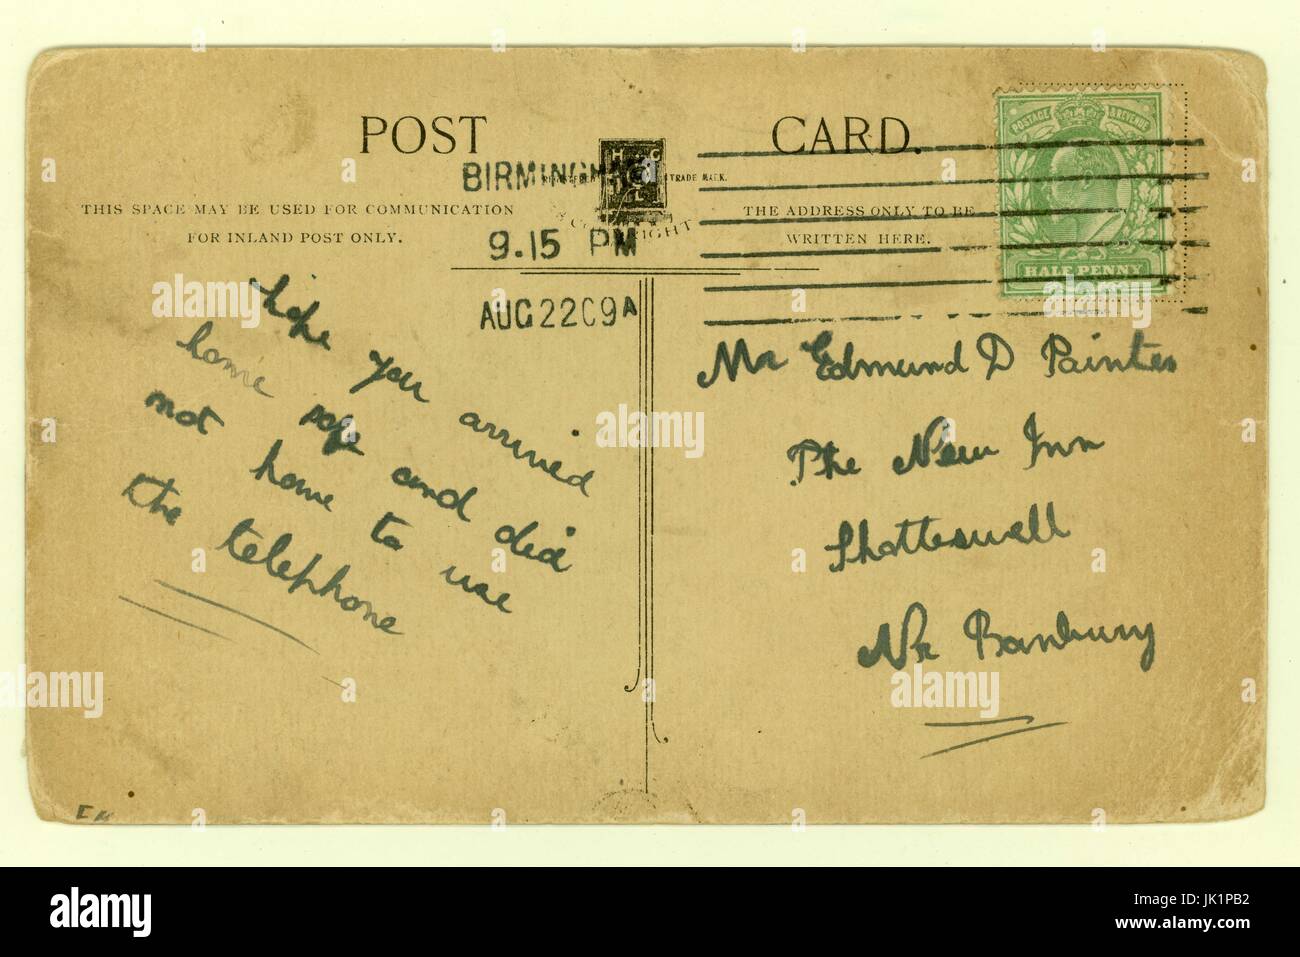 POST CARD.
BIRMINGHAM
REGISTERED TRADE MARK.
THIS SPACE MAY BE USED FOR COMMUNICATION
FOR INLAND POST ONLY.
THE ADDRESS ONLY TO BE
WRITTEN HERE.
COPYRIGHT
9.15 PM
AUG 22 09 A
POSTAGE & REVENUE
HALF PENNY
Hope you arrived
home safe and did
not home to use
the telephone
Mr Edmund D Painter
The New Inn
Shotteswell
Nr Banbury
alamy stock photo
Image ID: JK1PB2
www.alamy.com